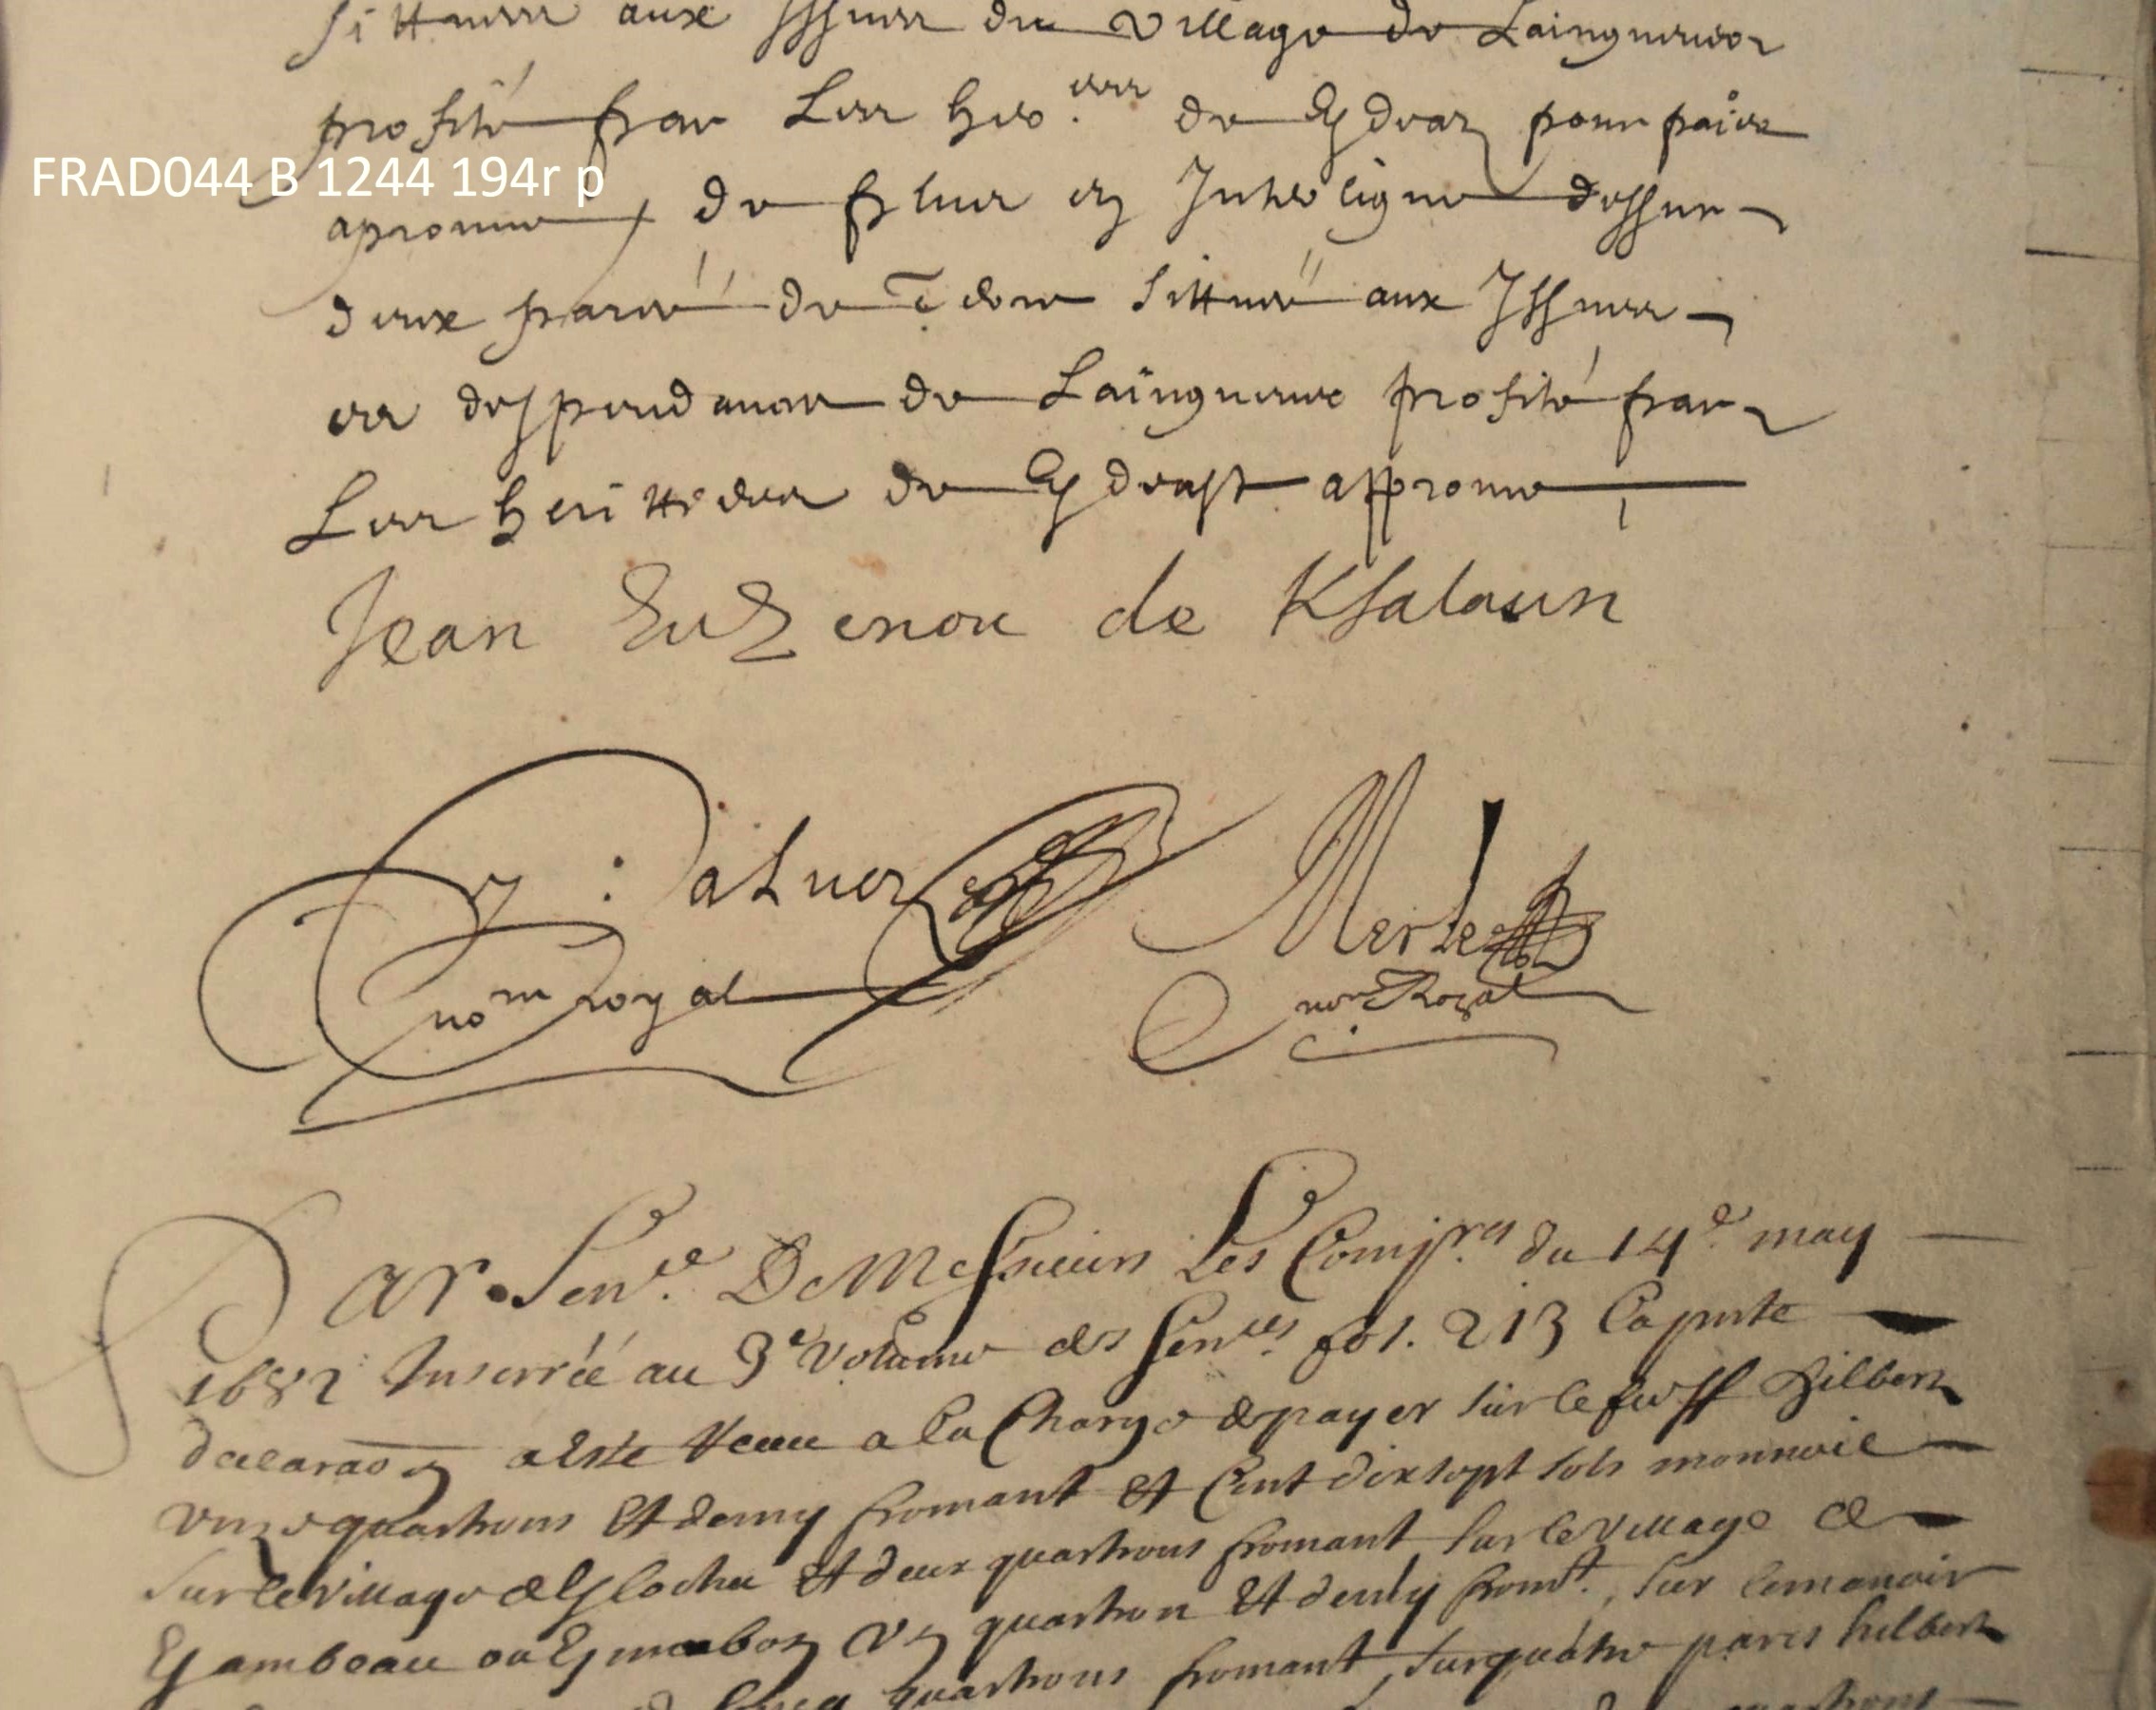 sittuees aux Issues du village de Lainguervor
profité par Les her.ers de Kdrean pour paiée
FRAD044 B 1244 194r p
aprouvé, de plus en Interligne dessus
deux parcs de terre sittués aux Issues
et despendance de Lainguerve profité par
Les heritteres de Kdreast approuvé
Jean EuZenou de Ksalaun
Daluer
nore royal
Merle
nore Royal
Par Sence De Messieurs Les Comisres du 14e may
1682 Inserrée au 3e Volume des Sences fol. 213 La pnte
declaraõn a esté Receue a la Charge de payer sur le fieff hilbert
unze quartrons Et demy fromant Et Cent dix sept sols monnoie
sur le village de Klochu Et deux quartrons fromant sur le village de
Kjambeau ou Kmabon Un quartron Et demy fromt., sur le manoir
quartrons fromant, sur quatre parcs hilbert
quartrons